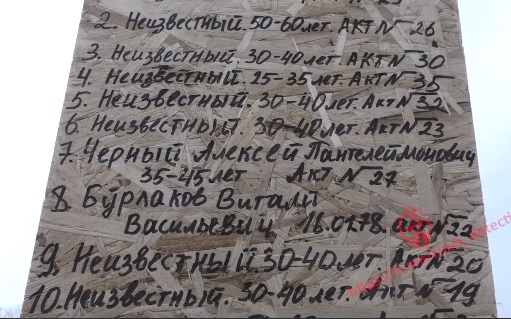 2. Неизвестный. 50-60 лет. АКТ N 26
3. Неизвестный. 30-40 лет. АКТ N 30
4. Неизвестный. 25-35 лет. АКТ N 35
5. Неизвестный. 30-40 лет. АКТ N 32
6. Неизвестный. 30-40 лет. АКТ N 23
7. Черный Алексей Пантелеймонович
35-45 лет АКТ N 27
8. Бурлаков Витали
Васильевич 16.01.78. акт N 22
9. Неизвестный. 30-40 лет АКТ N 20
10. Неизвестный. 30-40 лет. Акт N 19